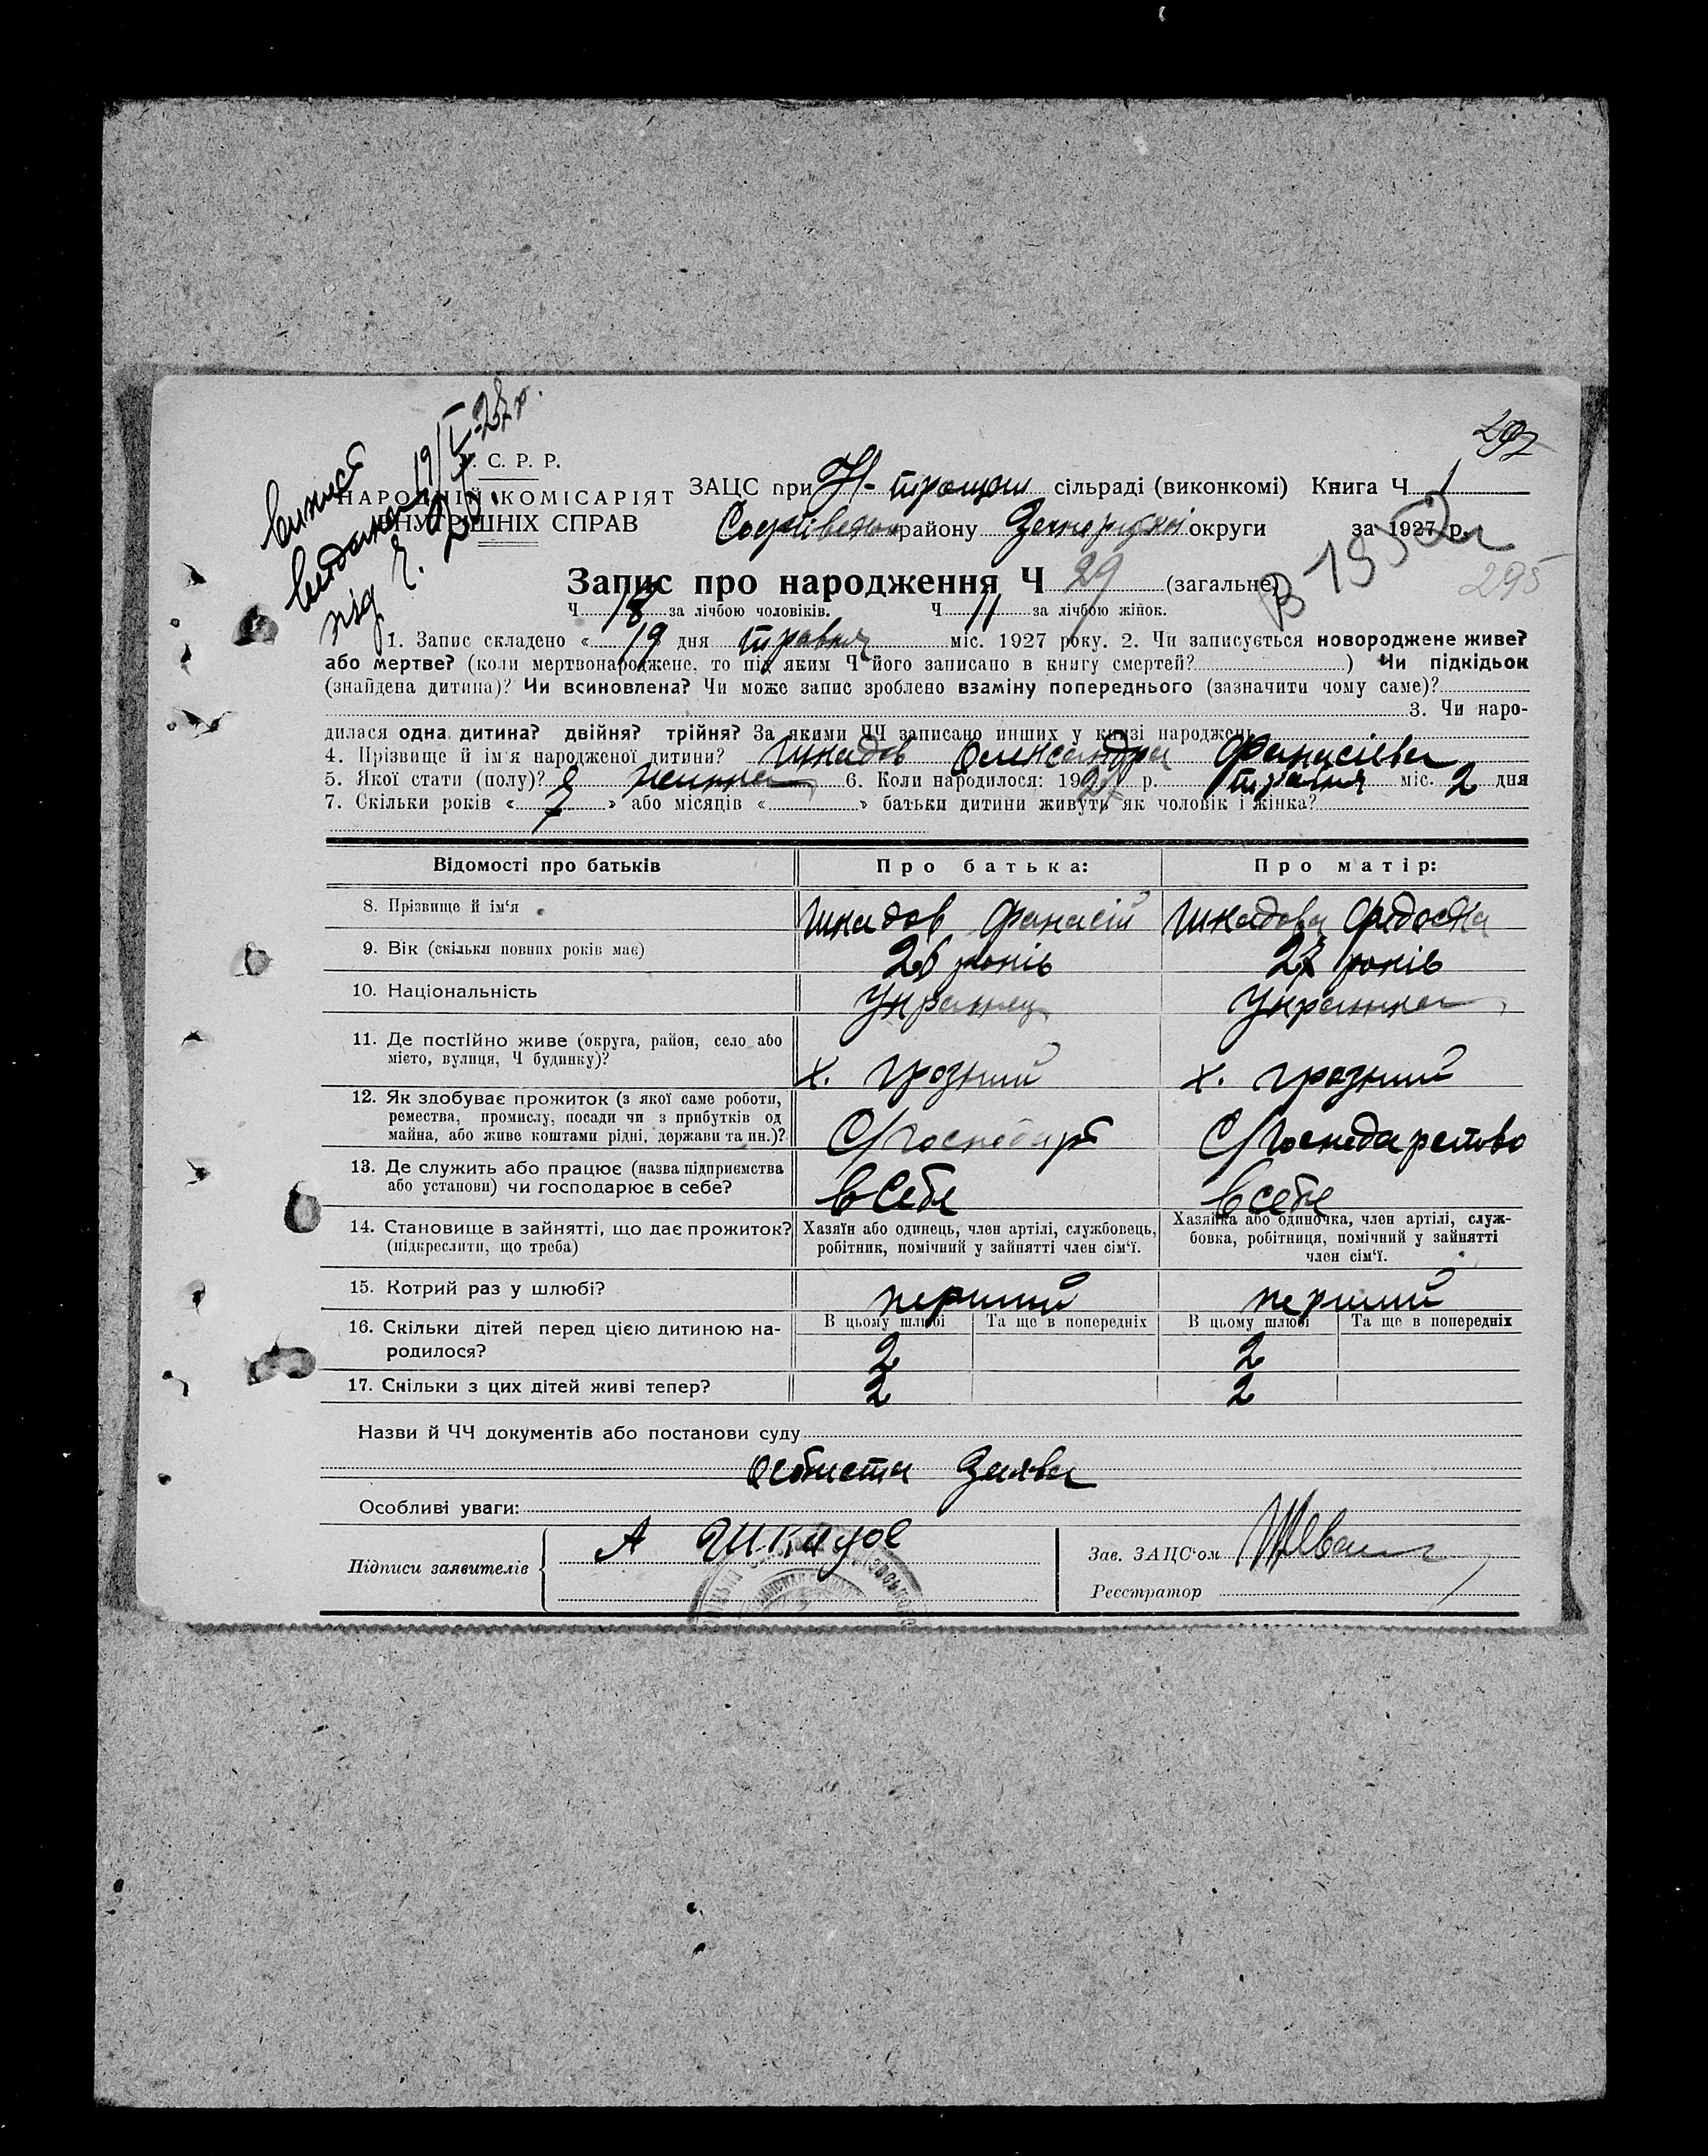 297
С. Р. Р.
НАРОДНІЙ КОМІСАРІЯТ
ВНУТРІШНІХ СПРАВ
Виписъ
видана 19/V-27 р.
під Ч.
ЗАЦС при сільраді (виконкомі) Книга Ч 1
району округи за 1927 р.
295
Запис про народження Ч 29 (загальне)
Ч 18 за лічбою чоловіків. Ч 11 за лічбою жінок.
1. Запис складено « 19 дня травня міс. 1927 року. 2. Чи записується новороджене живе?
або мертве? (коли мертвонароджене, то під яким Ч його записано в книгу смертей? ) Чи підкідьок
(знайдена дитина)? Чи всиновлена? Чи може запис зроблено взаміну попереднього (зазначити чому саме)?
3. Чи наро-
дилася одна дитина? двійня? трійня? За якими ЧЧ записано инших у книзі народжень
4. Прізвище й ім'я народженої дитини? Шкадов Олександра Фанасієва
5. Якої стати (полу)? жіноча 6. Коли народилося: 1927 р. травня міс. 2 дня
7. Скільки років « 7 » або місяців « » батьки дитини живуть як чоловік і жінка?
Відомості про батьків Про батька: Про матір:
8. Прізвище й ім'я Шкадов Фанасій Шкадова Федосія
9. Вік (скільки повних років має) 26 років 27 років
10. Національність Українец Українка
11. Де постійно живе (округа, район, село або
місто, вулиця, Ч будинку)? х. Грозний х. Грозний
12. Як здобуває прожиток (з якої саме роботи,
ремества, промислу, посади чи з прибутків од
майна, або живе коштами рідні, держави та ин.)? С/Господар С/Господарство
13. Де служить або працює (назва підприємства
або установи) чи господарює в себе? в себе в себе
14. Становище в зайнятті, що дає прожиток? Хазяїн або одинець, член артілі, службовець, Хазяйка або одиночка, член артілі, служ-
(підкреслити, що треба) робітник, помічний у зайнятті член сім'ї. бовка, робітниця, помічний у зайнятті
член сім'ї.
15. Котрий раз у шлюбі? перший перший
16. Скільки дітей перед цією дитиною на- В цьому шлюбі Та ще в попередніх В цьому шлюбі Та ще в попередніх
родилося? 2 2
17. Скільки з цих дітей живі тепер? 2 2
Назви й ЧЧ документів або постанови суду
Особиста Заява
Особливі уваги:
Підписи заявителів А Шкадов Зав. ЗАЦС'ом
Реєстратор